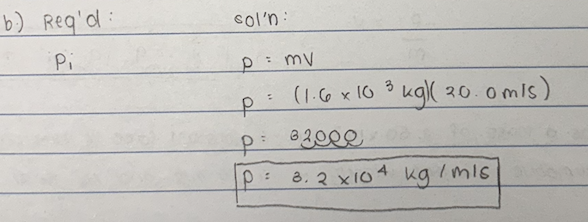 b.) Req'd: sol'n:
Pi p = mv
p = (1.6 × 10³ kg)(20.0 m/s)
p = 32000
p = 3.2 × 10⁴ kg/m/s